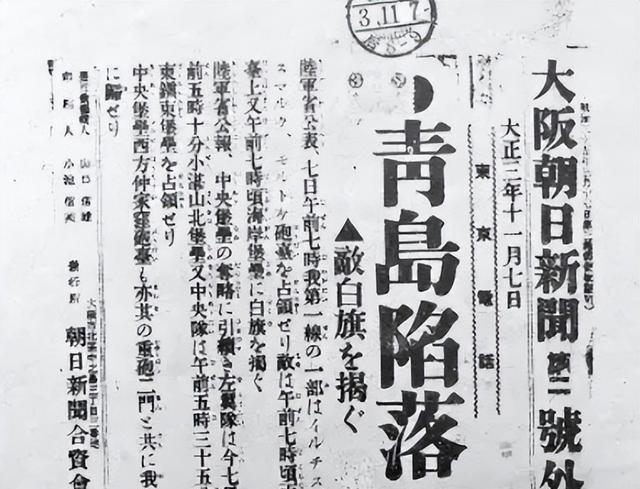 3.11.7-
大阪朝日新聞 第二 號外
大正三年十一月七日
東京電話
●靑島陷落
▲敵白旗を揭ぐ
陸軍省公表、七日午前七時我第一線の一部はイルチス
スマルク、モルトケ砲臺を占領せり敵は午前七時頃
臺上又午前七時頃海岸堡壘に白旗を揭ぐ
陸軍省公報、中央堡壘の奪略に引續き左翼隊は今七
前五時十分小湛山北堡壘又中央隊は午前五時三十五
東鎭東堡壘を占領せり
中央堡壘西方仲家窪砲臺も亦其の重砲二門と共に我
に歸せり
小池信美
發行所
朝日新聞合資會